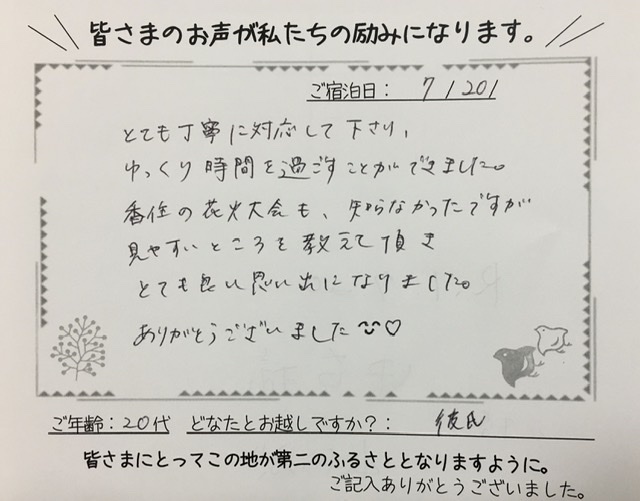 皆さまのお声が私たちの励みになります。
ご宿泊日： 7/20)
とても丁寧に対応して下さり、
ゆっくり時間を過ごすことができました。
香住の花火大会も、知らなかったですが
見やすいところを教えて頂き
とても良い思い出になりました。
ありがとうございました
ご年齢：20代 どなたとお越しですか？： 彼氏
皆さまにとってこの地が第二のふるさととなりますように。
ご記入ありがとうございました。